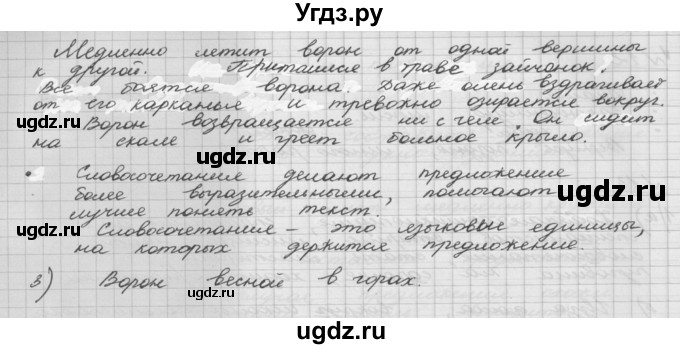 Угдз.ру
Медленно летит ворон от одной вершины
к другой. Притаился в траве зайчонок.
Все боятся ворона. Даже олень вздрагивает
от его карканья и тревожно озирается вокруг.
Ворон возвращается ни с чем. Он сидит
на скале и греет больное крыло.
Словосочетание делают предложение
более выразительными, помогают
лучше понять текст.
Словосочетание - это языковые единицы,
на которых держится предложение.
3) Ворон весной в горах.
ugdz.ru
ugdz.ru
ugdz.ru
ugdz.ru
ugdz.ru
ugdz.ru
ugdz.ru
ugdz.ru
ugdz.ru